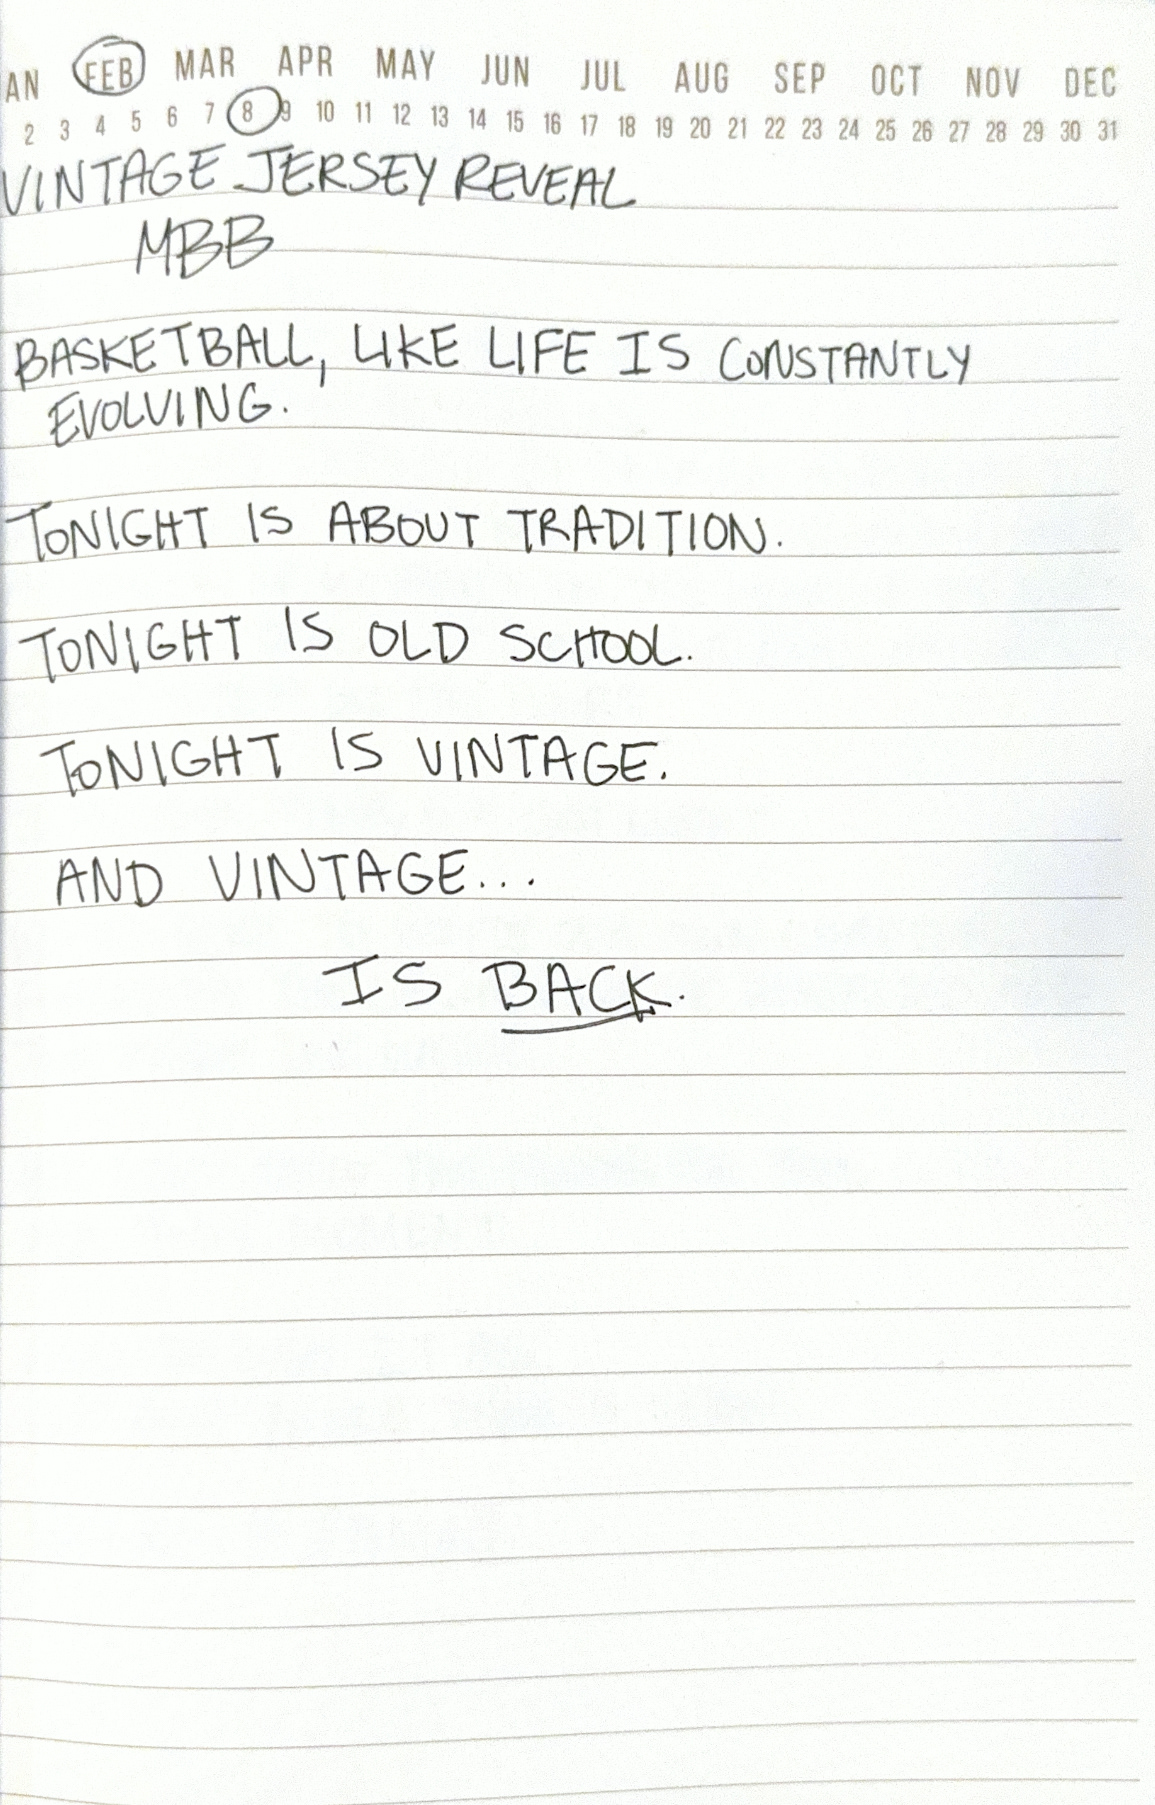 AN FEB MAR APR MAY JUN JUL AUG SEP OCT NOV DEC
2 3 4 5 6 7 8 9 10 11 12 13 14 15 16 17 18 19 20 21 22 23 24 25 26 27 28 29 30 31
VINTAGE JERSEY REVEAL
MBB
BASKETBALL, LIKE LIFE IS CONSTANTLY
EVOLVING.
TONIGHT IS ABOUT TRADITION.
TONIGHT IS OLD SCHOOL.
TONIGHT IS VINTAGE.
AND VINTAGE...
IS BACK.